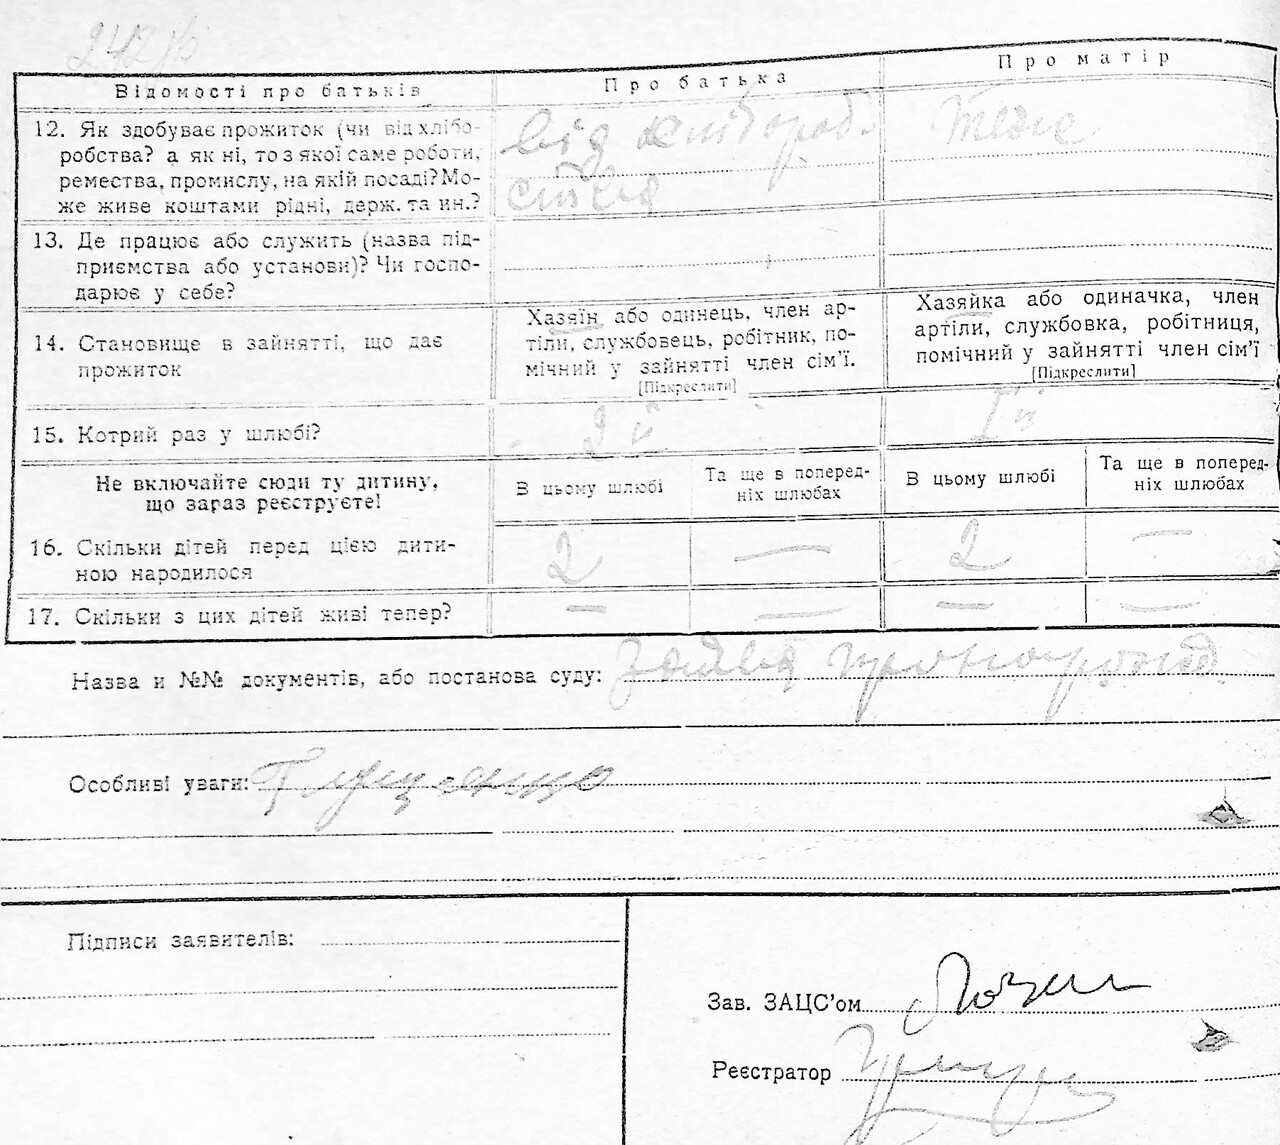 242
Відомості про батьків
Про батька
Про матір
12. Як здобуває прожиток (чи від хлібо-
робства? а як ні, то з якої саме роботи,
ремества, промислу, на якій посаді? Мо-
же живе коштами рідні, держ. та ин.?
від хлібороб-
ства
теже
13. Де працює або служить (назва під-
приємства або установи)? Чи госпо-
дарює у себе?
14. Становище в зайнятті, що дає
прожиток
Хазяїн або одинець, член ар-
тіли, службовець, робітник, по-
мічний у зайнятті член сім'ї.
[Підкреслити]
Хазяйка або одиначка, член
артіли, службовка, робітниця,
помічний у зайнятті член сім'ї
[Підкреслити]
15. Котрий раз у шлюбі?
2й
Iй
Не включайте сюди ту дитину,
що зараз реєструєте!
В цьому шлюбі
Та ще в поперед-
ніх шлюбах
В цьому шлюбі
Та ще в поперед-
ніх шлюбах
16. Скільки дітей перед цією дити-
ною народилося
2
—
2
—
17. Скільки з цих дітей живі тепер?
—
—
—
—
Назва и №№ документів, або постанова суду:
Особливі уваги:
Підписи заявителів:
Зав. ЗАЦС'ом
Реєстратор